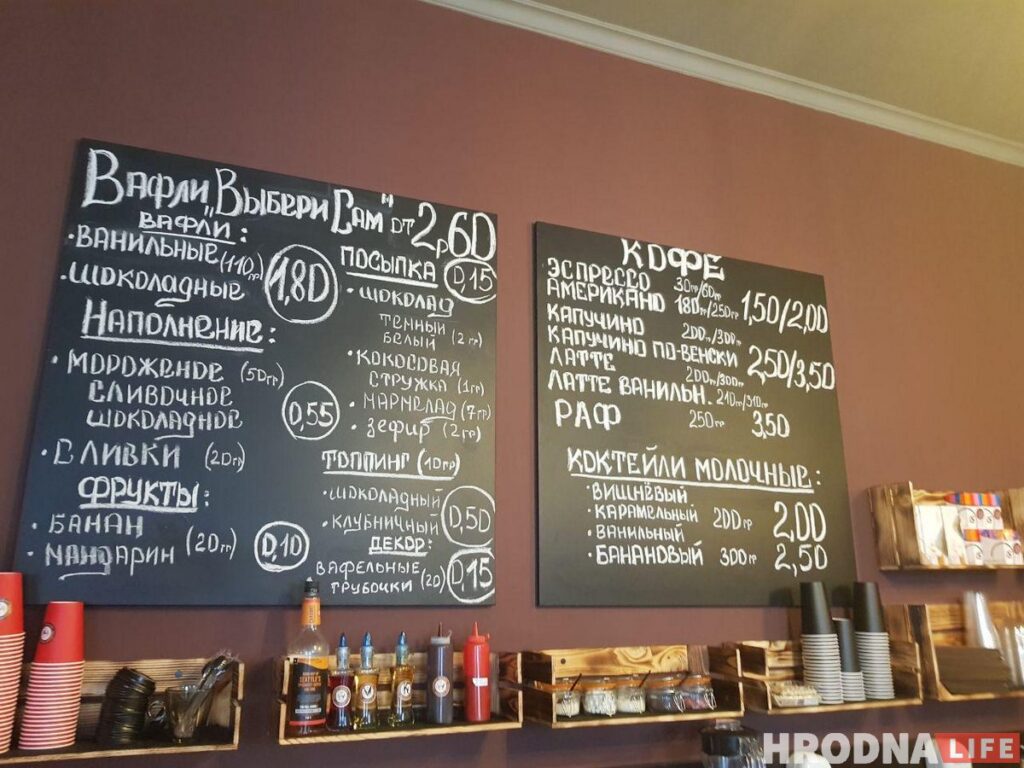 Вафли „Выбери Сам" от 2р60
Вафли:
·Ванильные (110гр)
·Шоколадные
1,80
Наполнение:
·Мороженое (50гр)
Сливочное
Шоколадное
0,55
·Сливки (20гр)
Фрукты:
·Банан
·Мандарин (20гр)
0,10
Посыпка 0,15
·Шоколад
темный
белый (2гр)
·Кокосовая
стружка (1гр)
·Мармелад (7гр)
·Зефир (2гр)
Топпинг (10гр)
·Шоколадный
·Клубничный 0,50
Декор:
Вафельные
трубочки (20) 0,15
КОФЕ
ЭСПРЕССО 30гр/60гр
АМЕРИКАНО 180гр/250гр 1,50/2,00
КАПУЧИНО 200гр/300гр
КАПУЧИНО ПО-ВЕНСКИ 2,50/3,50
ЛАТТЕ 200гр/300гр
ЛАТТЕ ВАНИЛЬН. 210гр/310гр
РАФ 250гр 3,50
КОКТЕЙЛИ МОЛОЧНЫЕ:
·ВИШНЁВЫЙ
·КАРАМЕЛЬНЫЙ 200гр 2,00
·ВАНИЛЬНЫЙ
·БАНАНОВЫЙ 300гр 2,50
SEATTLE'S
HRODNA LIFE